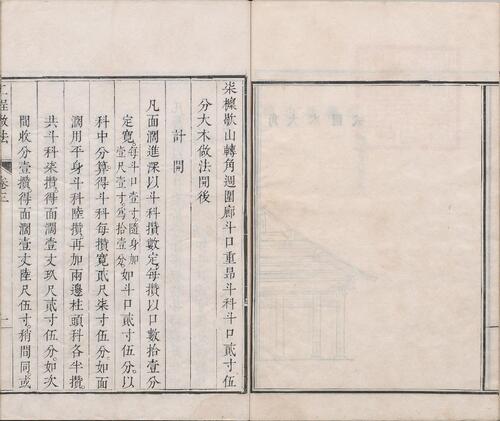 柒檁歇山轉角週圍廊斗口重昂斗科斗口貳寸伍
分大木做法開後
計開
凡面濶進深以斗科攢數定每攢以口數拾壹分
定寬每斗口壹寸隨身加壹尺壹寸爲拾壹分如斗口貳寸伍分以
科中分算得斗科每攢寬貳尺柒寸伍分如面
濶用平身斗科陸攢再加兩邊柱頭科各半攢
共斗科柒攢得面濶壹丈玖尺貳寸伍分如次
間收分壹攢得面濶壹丈陸尺伍寸稍間同或
工程做法 卷三 一